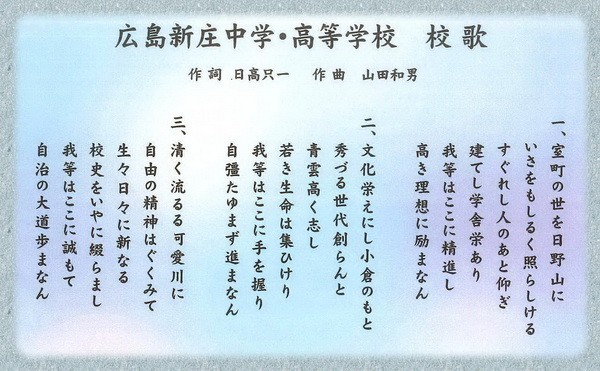 広島新庄中学・高等学校　校歌
作詞　日高只一　作曲　山田和男
一、室町の世を日野山に
いさをもしるく照らしける
すぐれし人のあと仰ぎ
建てし学舎栄あり
我等はここに精進し
高き理想に励まなん
二、文化栄えにし小倉のもと
秀づる世代創らんと
青雲高く志し
若き生命は集ひけり
我等はここに手を握り
自彊たゆまず進まなん
三、清く流るる可愛川に
自由の精神はぐくみて
生々日々に新なる
校史をいやに綴らまし
我等はここに誠もて
自治の大道歩まなん